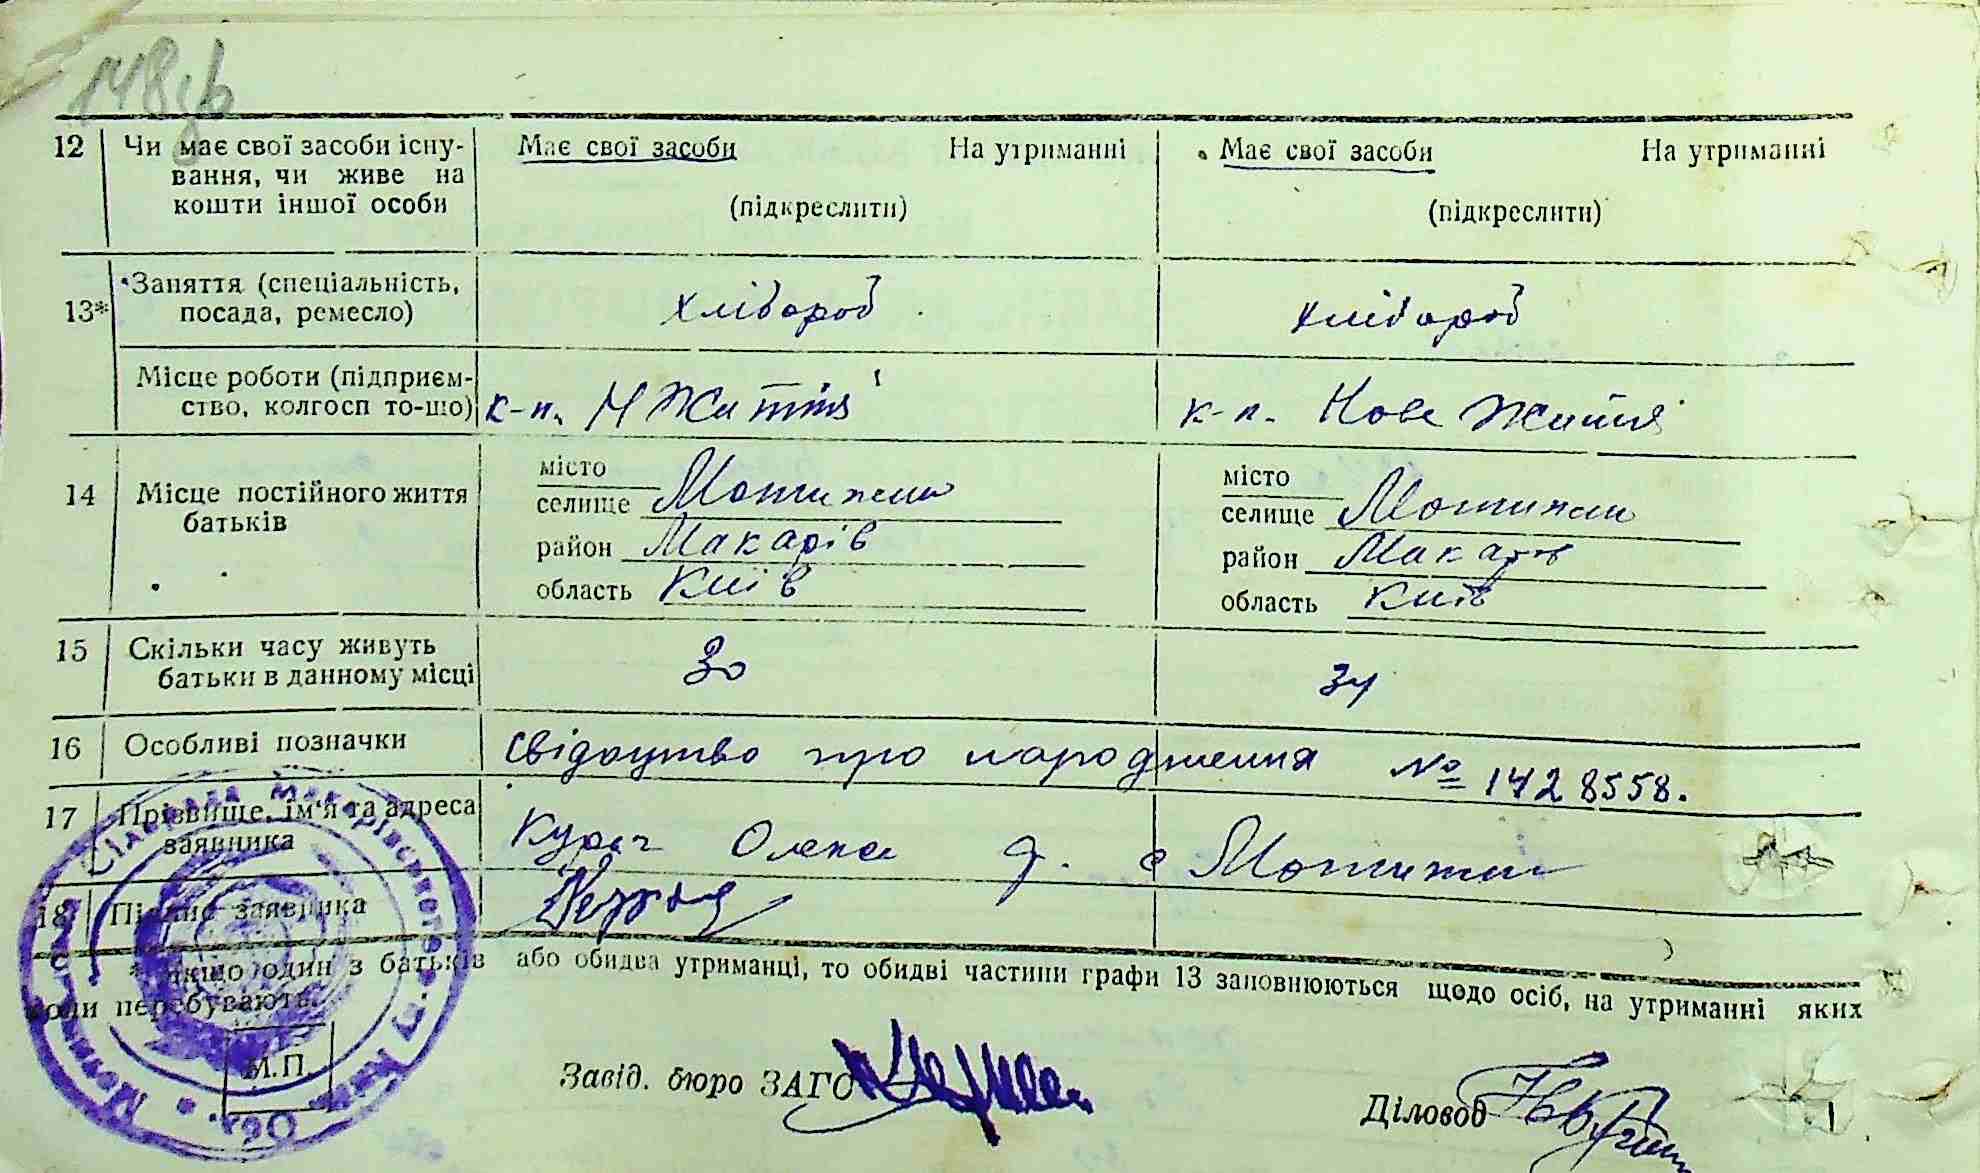 148зв
12 Чи має свої засоби існу- Має свої засоби На утриманні Має свої засоби На утриманні
вання, чи живе на
кошти іншої особи (підкреслити) (підкреслити)
13* Заняття (спеціальність,
посада, ремесло) Хлібороб Хлібороб
Місце роботи (підприєм-
ство, колгосп то-що) к-п. Н Життя к-п. Нове Життя
місто місто
14 Місце постійного життя селище Мотижин селище Мотижин
батьків район Макарів район Макарів
область Київ область Київ
15 Скільки часу живуть
батьки в данному місці 30 34
16 Особливі позначки Свідоцтво про народження № 1428558.
17 Прізвище, ім'я та адреса
заявника Олекса Д. с Мотижин
18 Підпис заявника
* Якщо один з батьків або обидва утриманці, то обидві частини графи 13 заповнюються щодо осіб, на утриманні яких
вони перебувають.
М.П.
Завід. бюро ЗАГС
Діловод